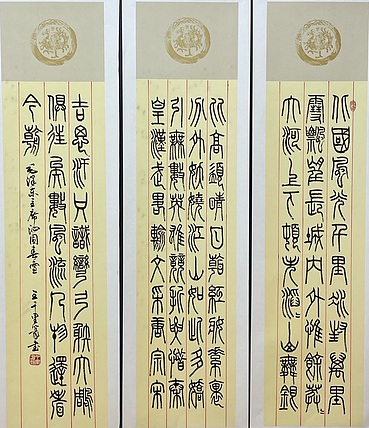 北國風光千里冰封萬里
雪飄望長城內外惟餘莽々
大河上下頓失滔々山舞銀
公高須晴日看紅妝素裹
分外妖嬈江山如此多嬌
引無數英雄競折腰惜秦
皇漢武略輸文采唐宗宋
吉思汗只識彎弓射大雕
俱往矣數風流人物還看
今朝
毛澤東主席沁園春雪